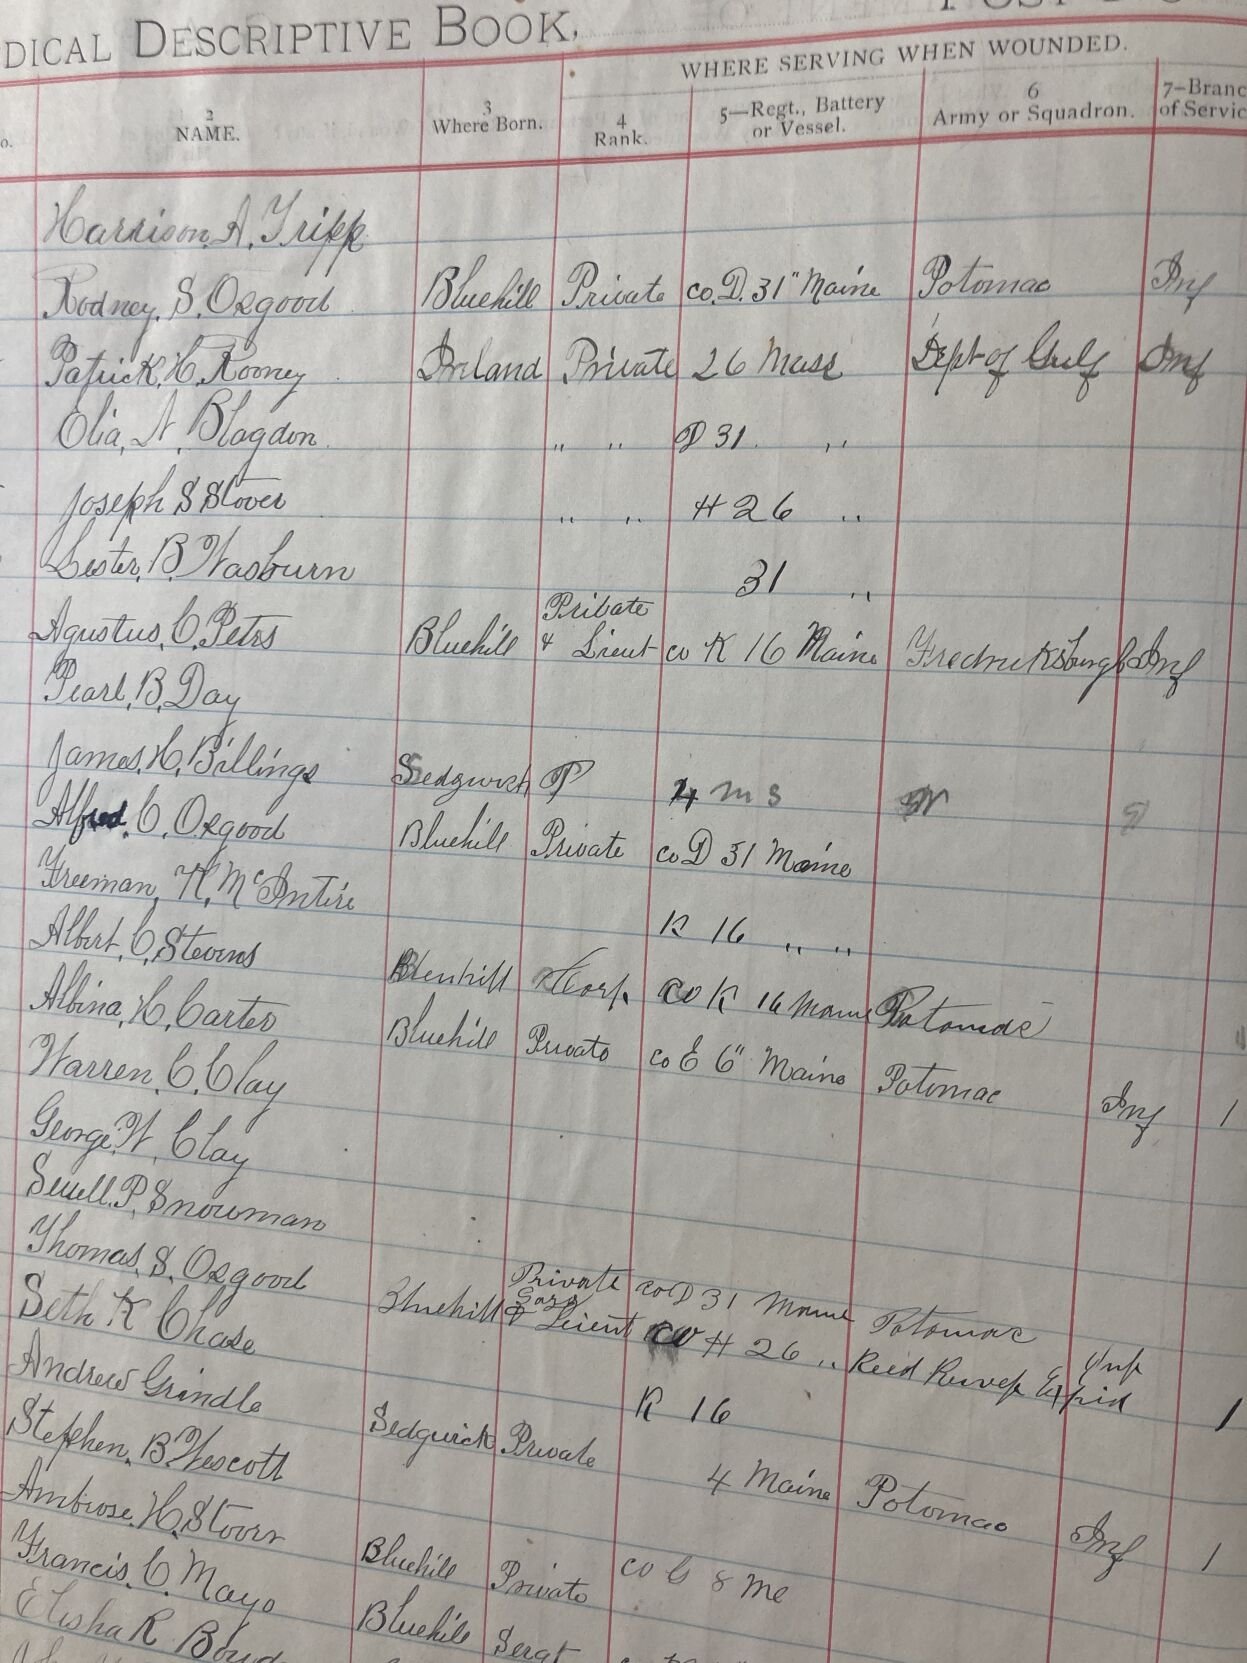 DICAL DESCRIPTIVE BOOK,
WHERE SERVING WHEN WOUNDED.
o. 2 NAME. 3 Where Born. 4 Rank. 5—Regt., Battery or Vessel. 6 Army or Squadron. 7—Branc of Servic
Harrison, A, Tripp
Rodney, S. Osgood Bluehill Private co. D. 31" Maine Potomac Inf
Patrick, H, Rooney Ireland Private 26 Mass Dept of Gulf Inf
Elia, N, Blagdon " " D 31 "
Joseph S Stover " " H 26 "
Lester, B, Wasburn 31 "
Private
Agustus, C. Petrs Bluehill & Lieut co K 16 Maine Fredricksburgh Inf
Pearl, B, Day
James, H, Billings Sedgwick P 4 M S
Alfred, C, Osgood Bluehill Private co D 31 Maine
Freeman, H, McIntire K 16 " "
Albert, C, Stevens Bluehill Corp. CO K 16 Maine Potomac
Albina, H, Carter Bluehill Private co E 6" Maine Potomac Inf 1
Warren, C. Clay
George, W, Clay
Sewell. P, Snowman
Thomas, S, Osgood Bluehill Private co D 31 Maine Potomac
Seth K Chase & Lieut co H 26 " 1
Andrew Grindle K 16
Stephen, B, Wescott Sedgwick Private 4 Maine Potomac Inf 1
Ambrose, H, Stover
Francis, C, Mayo Bluehill Private CO G 8 Me
Elisha R Boyd Bluehill Sergt